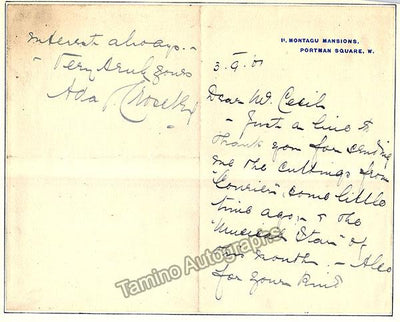 1ᴱ, MONTAGU MANSIONS,
PORTMAN SQUARE, W.
3.9.01
Dear Mr. Cecil
- Just a line to
thank you for sending
me the cuttings from
"Courier", some little
time ago, & the
"Musical Star" of
this month. - Also
for your kind
interest always. -
Very truly yours
Ada Crossley
Tamino Autographs